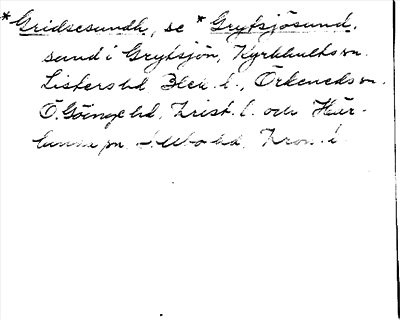 *Gridsesundh, se *Grytsjösund.
sund i Grytsjön, Kyrkhults sn.
Listers hd Blek. l., Örkeneds sn.
Ö. Göinge hd, Krist. l. och Här-
lunda sn. Allbo hd, Kron. l.